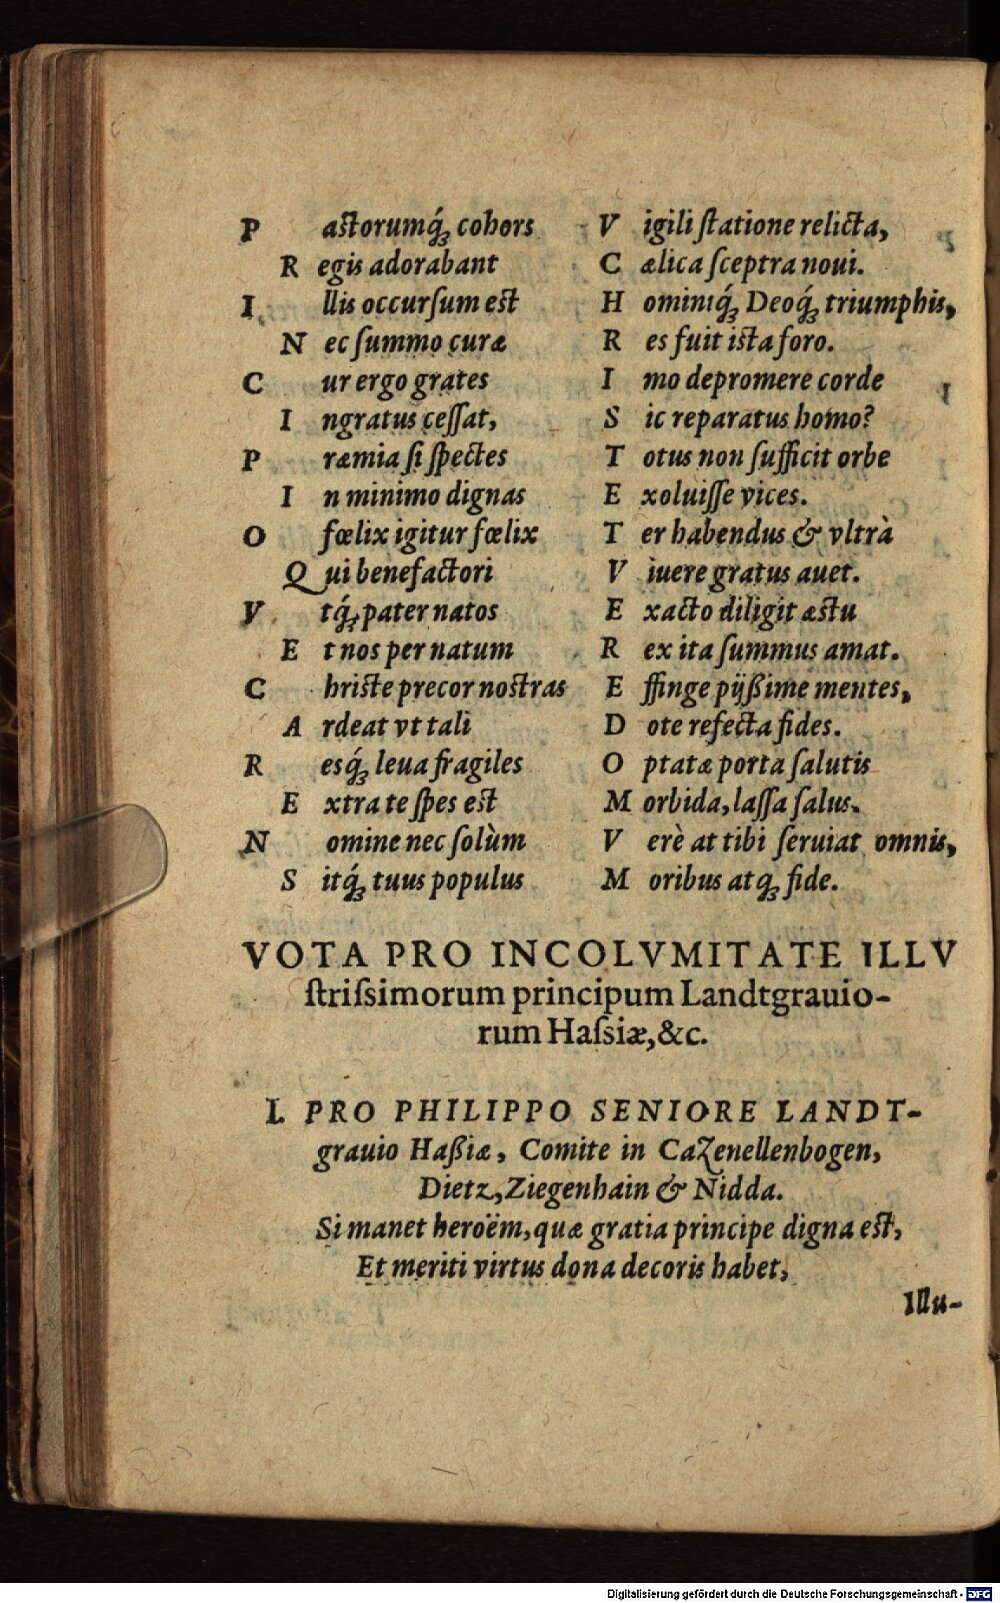 P aſtorumq́ꝫ cohors V igili ſtatione relicta,
R egis adorabant C ælica ſceptra noui.
I llis occurſum eſt H ominiq́ꝫ Deoq́ꝫ triumphis,
N ec ſummo curæ R es fuit iſta foro.
C ur ergo grates I mo depromere corde
I ngratus ceſſat, S ic reparatus homo?
P ræmia ſi ſpectes T otus non ſufficit orbe
I n minimo dignas E xoluiſſe vices.
O fœlix igitur fœlix T er habendus & vltrà
Q ui benefactori V iuere gratus auet.
V tq́ꝫ pater natos E xacto diligit æſtu
E t nos per natum R ex ita ſummus amat.
C hriſte precor noſtras E ffinge pijßime mentes,
A rdeat vt tali D ote refecta fides.
R esq́ꝫ leua fragiles O ptatæ porta ſalutis
E xtra te ſpes eſt M orbida, laſſa ſalus.
N omine nec ſolùm V erè at tibi ſeruiat omnis,
S itq́ꝫ tuus populus M oribus atqꝫ fide.
VOTA PRO INCOLVMITATE ILLV
ſtriſsimorum principum Landtgrauio-
rum Haſsiæ, &c.
I. PRO PHILIPPO SENIORE LANDT-
grauio Haßiæ, Comite in Cazenellenbogen,
Dietz, Ziegenhain & Nidda.
Si manet heroëm, quæ gratia principe digna eſt,
Et meriti virtus dona decoris habet,
Illu-
Digitalisierung gefördert durch die Deutsche Forschungsgemeinschaft - DFG